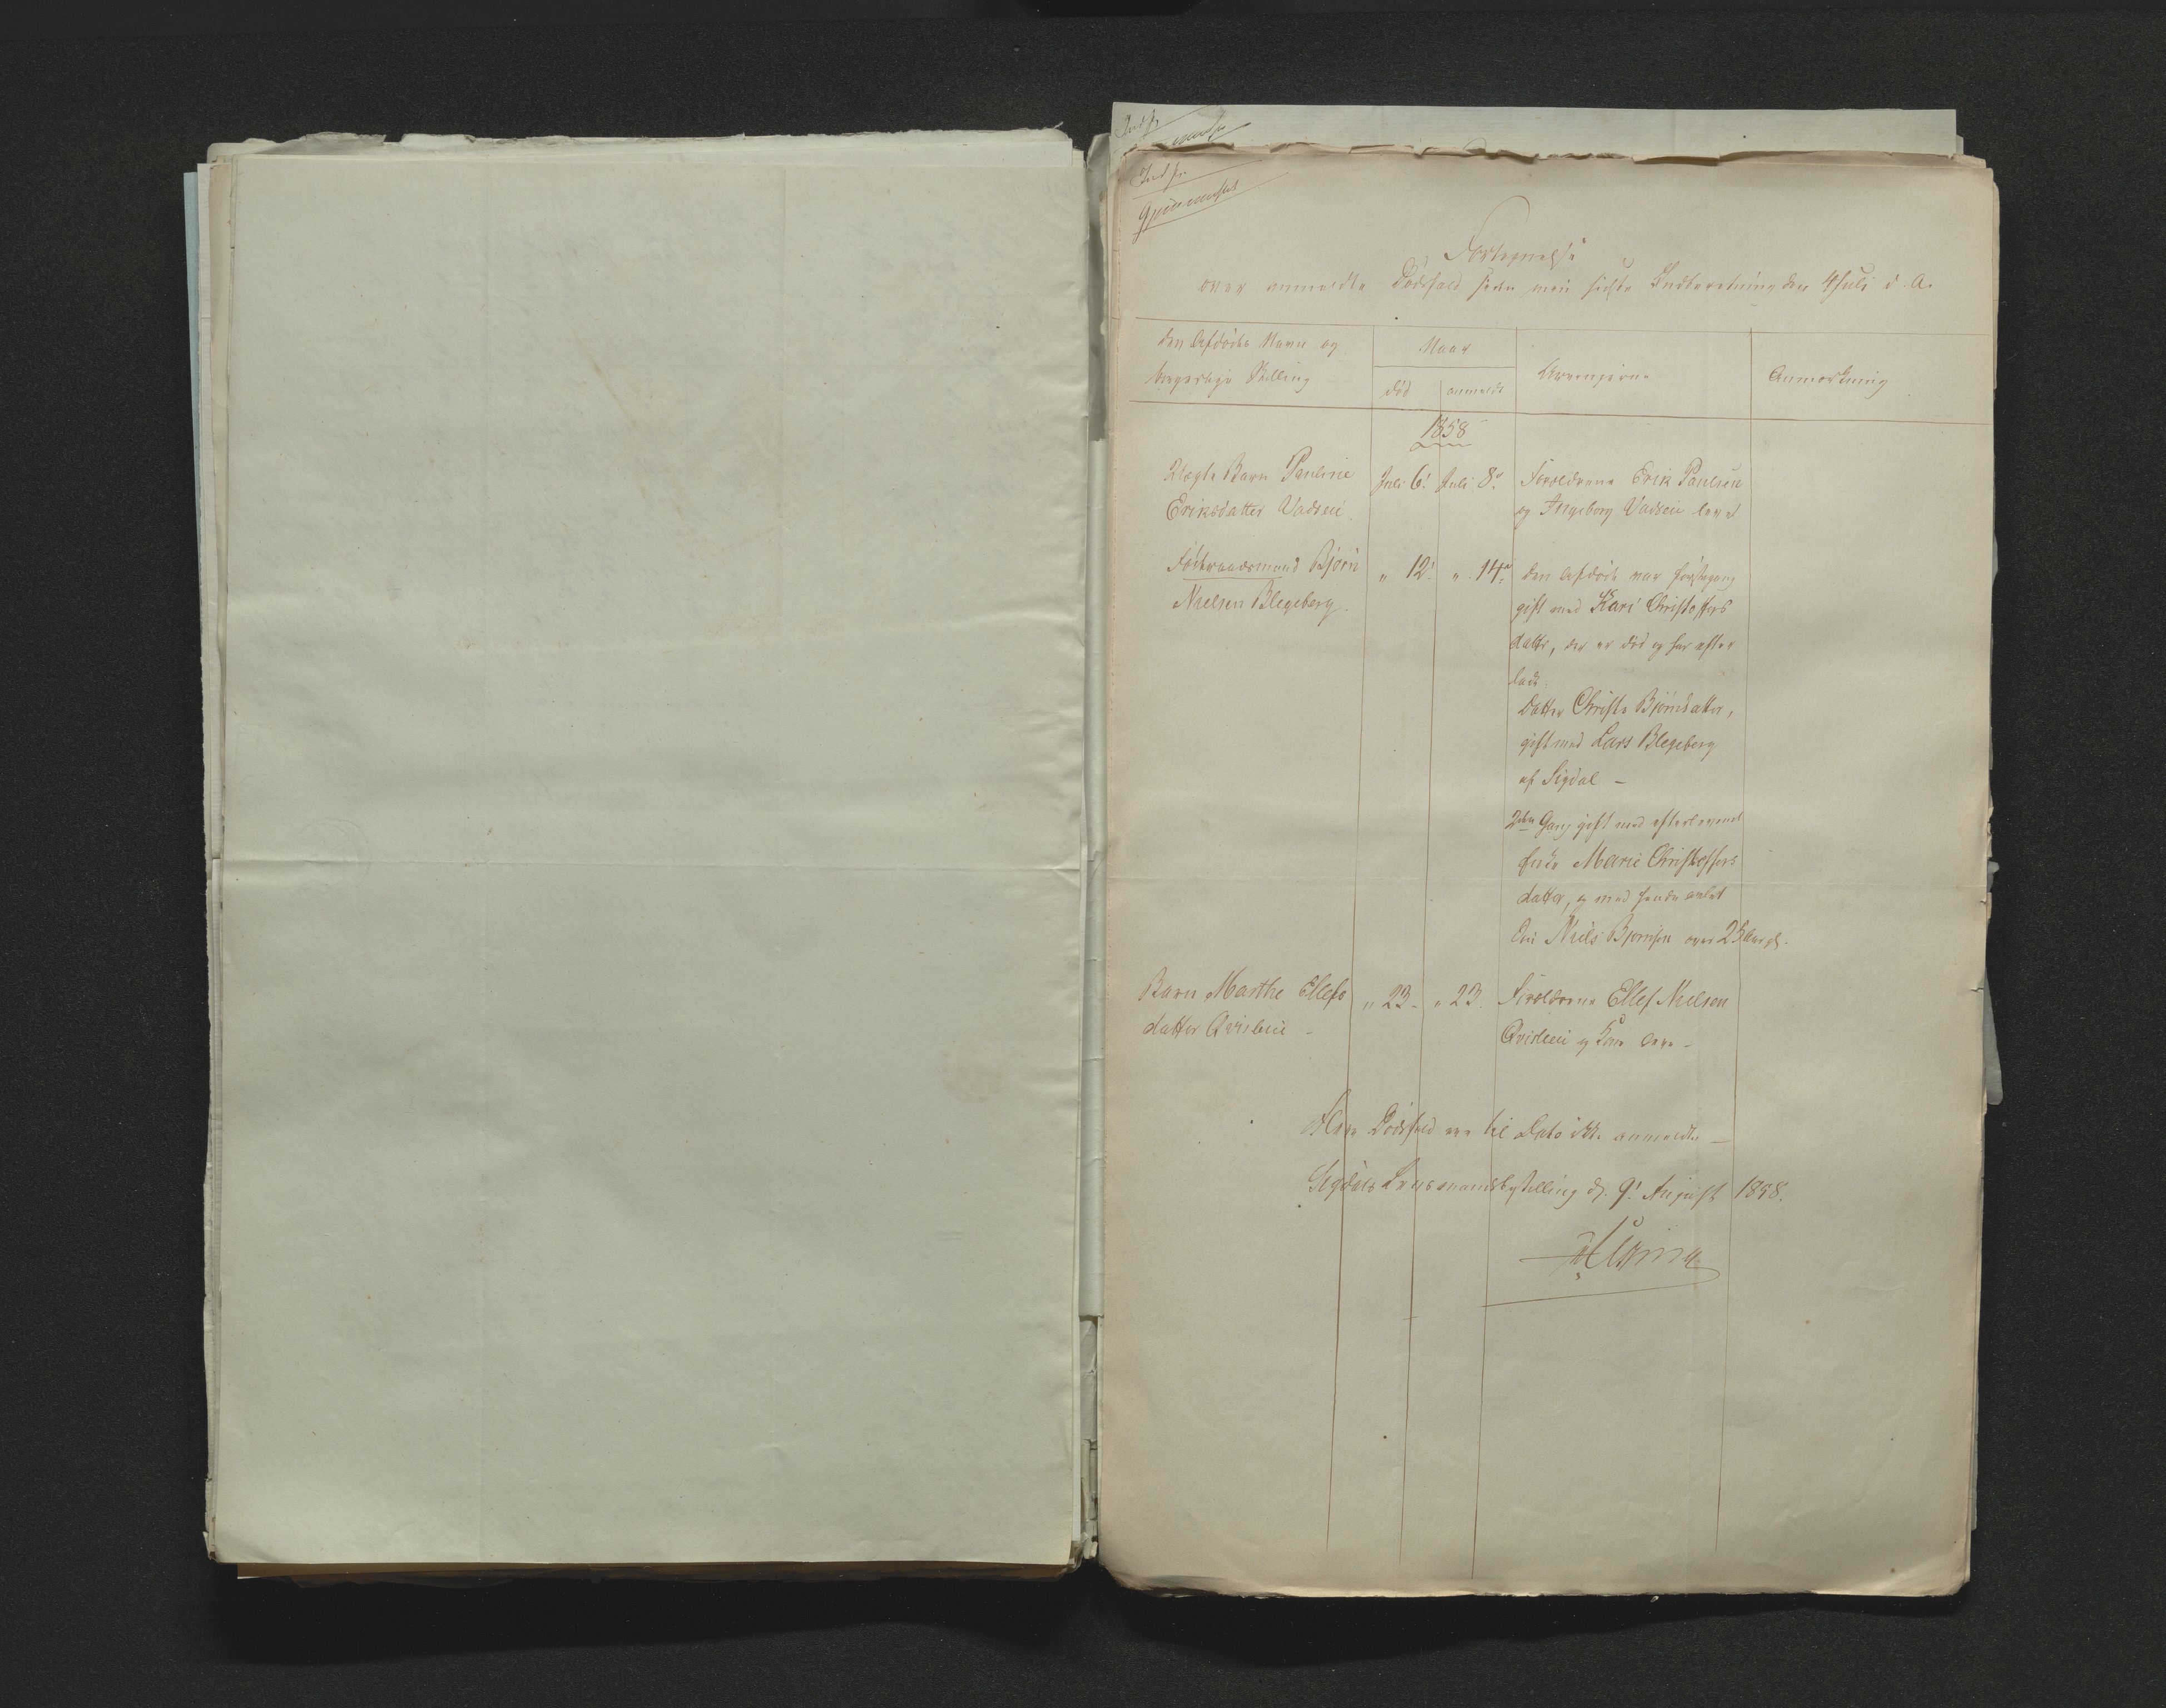 Indf.
Indf.
Gjennemseet
Fortegnelse
over anmeldte Dødsfald siden min sidste Indberetning den 4 Juli d. A.
Den Afdødes Navn og
borgerlige Stilling
Naar
død
anmeldt
Arvingerne
Anmærkning
1858
Ægte Barn Pauline
Eriksdatter Vadsen
Juli 6!
Juli 8.
Forældrene Erik Paulsen
og Ingeborg Vadsen lever
Føderaadsmand Bjørn
Nielsen Blegeberg.
" 12!
" 14.
Den Afdøde var førstegang
gift med Kari Christoffers
datter, der er død og har efter
ladt
Datter Christe Bjørnsdatter,
gift med Lars Blegeberg
af Sigdal –
2den Gang gift med efterlevende
Enke Marie Christoffers
datter, og med hende avlet
Søn Niels Bjørnsen over 25 Aar gl.
Barn Marthe Ellefs
datter Qvislein –
" 23 –
" 23.
Forældrene Ellef Nielsen
Qvislein og Kone leve –
Flere Dødsfald ere til Dato ikke anmeldte –
Sigdals Lensmandsbestilling d. 9! August 1858.